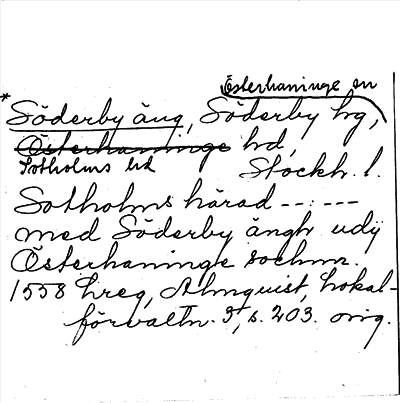 Österhaninge sn
*Söderby äng, Söderby hg,
Österhaninge hd,
Sotholms hd Stockh. l.
Sotholms härad -- : ---
med Söderby ängh udij
Österhaninge sochnn.
1558 hreg, Almquist, Lokal-
förvaltn. 3, s. 203. orig.